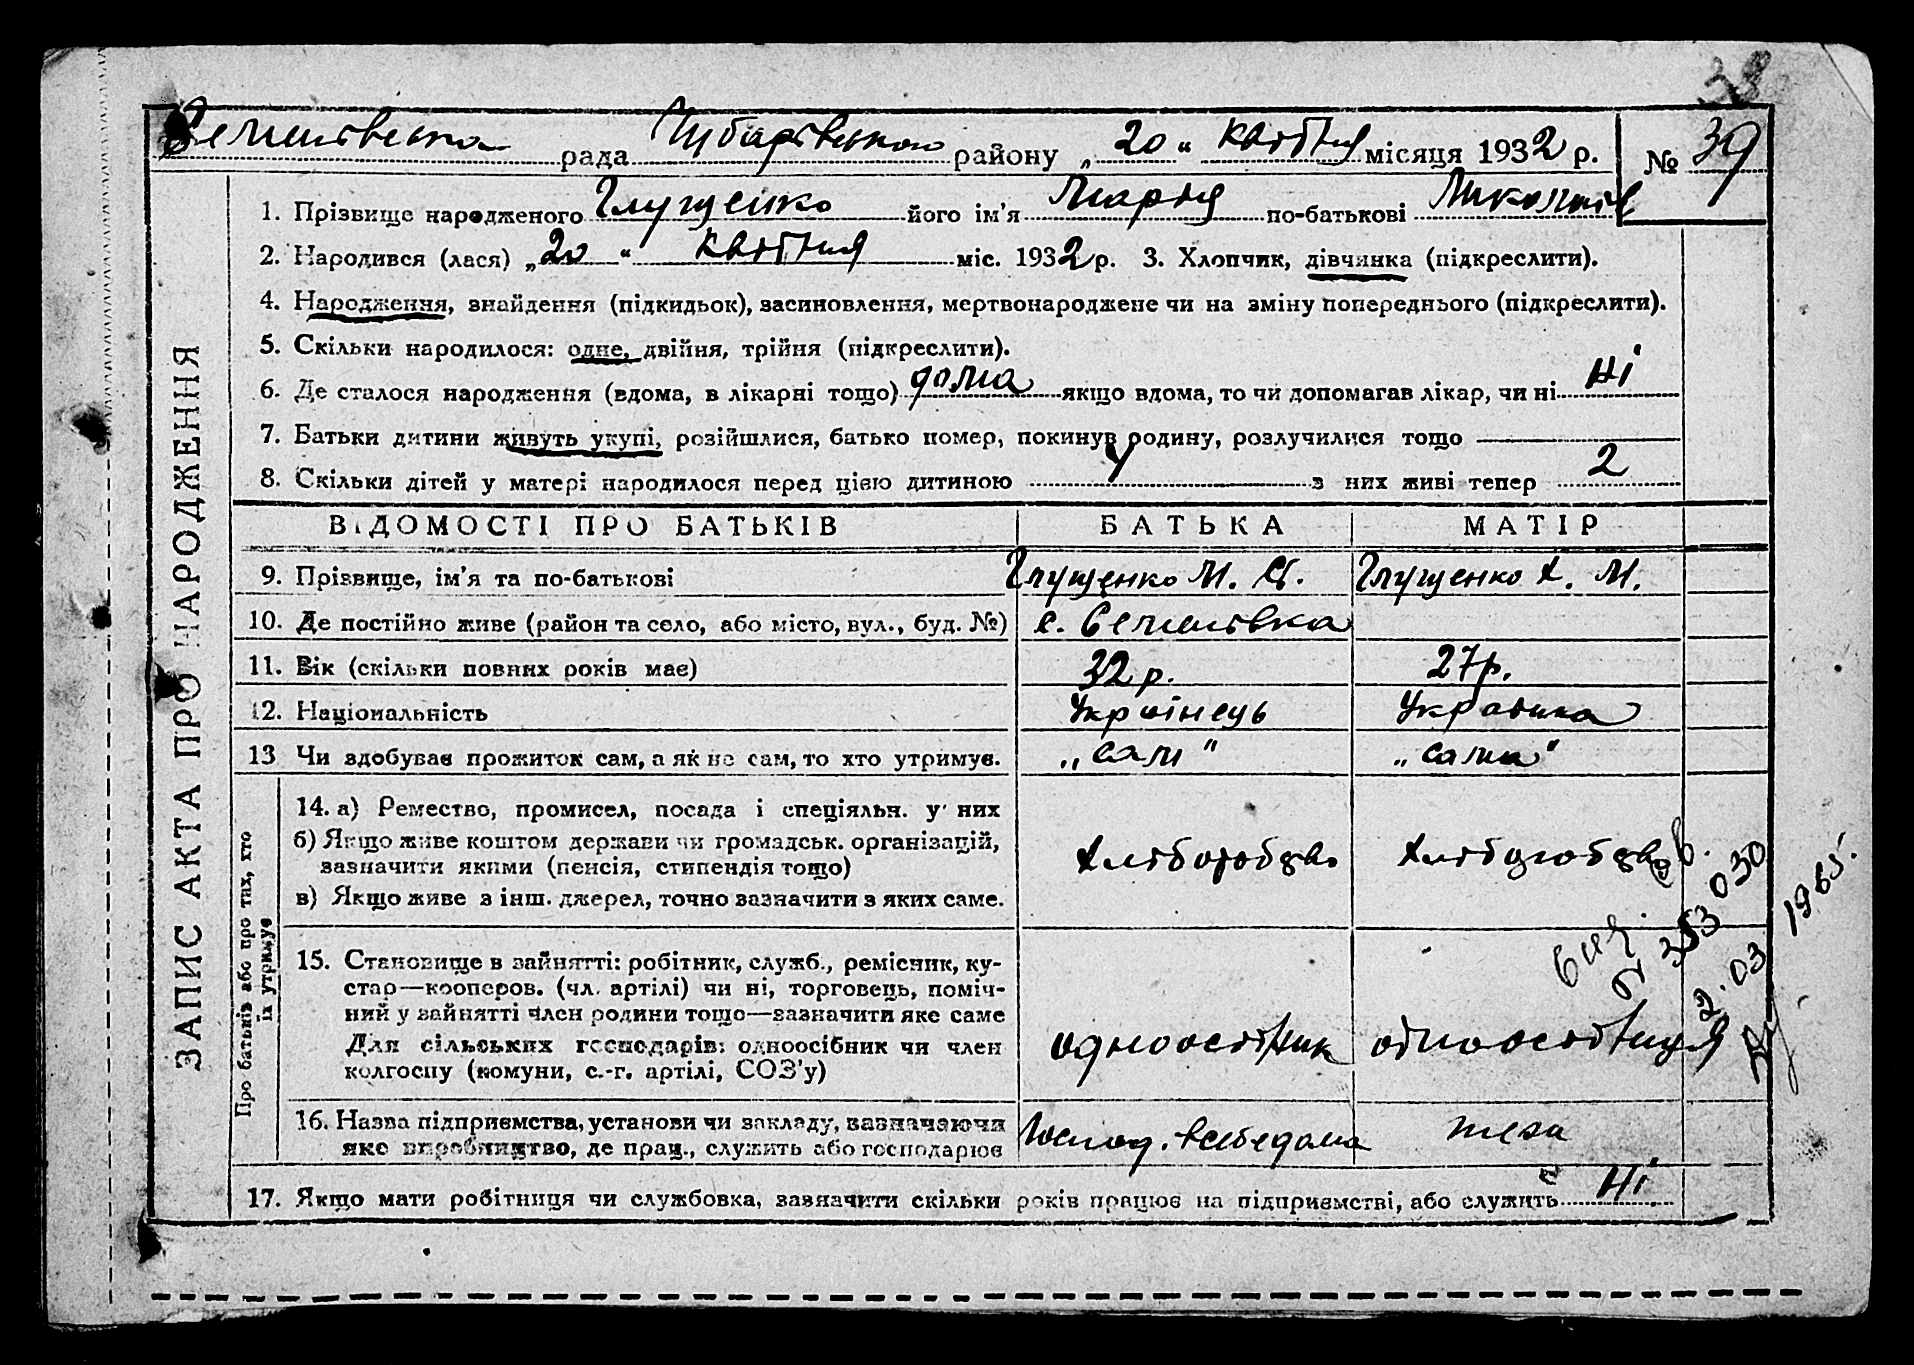 38
Семенівська рада Чубарівського району „20“ квітня місяця 1932 р. № 39
ЗАПИС АКТА ПРО НАРОДЖЕННЯ
1. Прізвище народженого Глущенко його ім'я Марія по-батькові
2. Народився (лася) „20“ квітня міс. 1932 р. 3. Хлопчик, дівчинка (підкреслити).
4. Народження, знайдення (підкидьок), засиновлення, мертвонароджене чи на зміну попереднього (підкреслити).
5. Скільки народилося: одне, двійня, трійня (підкреслити).
6. Де сталося народження (вдома, в лікарні тощо) дома якщо вдома, то чи допомагав лікар, чи ні Ні
7. Батьки дитини живуть укупі, розійшлися, батько помер, покинув родину, розлучилися тощо
8. Скільки дітей у матері народилося перед цією дитиною 4 з них живі тепер 2
ВІДОМОСТІ ПРО БАТЬКІВ БАТЬКА МАТІР
9. Прізвище, ім'я та по-батькові Глущенко М. Глущенко Х. М.
10. Де постійно живе (район та село, або місто, вул., буд. №) с. Семенівка
11. Вік (скільки повних років має) 32 р. 27 р.
12. Національність Українець Українка
13 Чи здобуває прожиток сам, а як не сам, то хто утримує. „сам" „сама"
Про батьків або про тих, хто
їх утримує
14. а) Ремество, промисел, посада і спеціяльн. у них
б) Якщо живе коштом держави чи громадськ. організацій,
зазначити якими (пенсія, стипендія тощо)
в) Якщо живе з інш. джерел, точно зазначити з яких саме.
Хліборобство Хліборобство
15. Становище в зайнятті: робітник, служб., ремісник, ку-
стар—кооперов. (чл. артілі) чи ні, торговець, поміч-
ний у зайнятті член родини тощо—зазначити яке саме
Для сільських господарів: одноосібник чи член
колгоспу (комуни, с.-г. артілі, СОЗ'у)
одноосібник одноосібниця
16. Назва підприємства, установи чи закладу, зазначаючи
яке виробництво, де прац., служить або господарює
Господ. в себе дома теж
17. Якщо мати робітниця чи службовка, зазначити скільки років працює на підприємстві, або служить Ні
353 030
2. 03 1965.